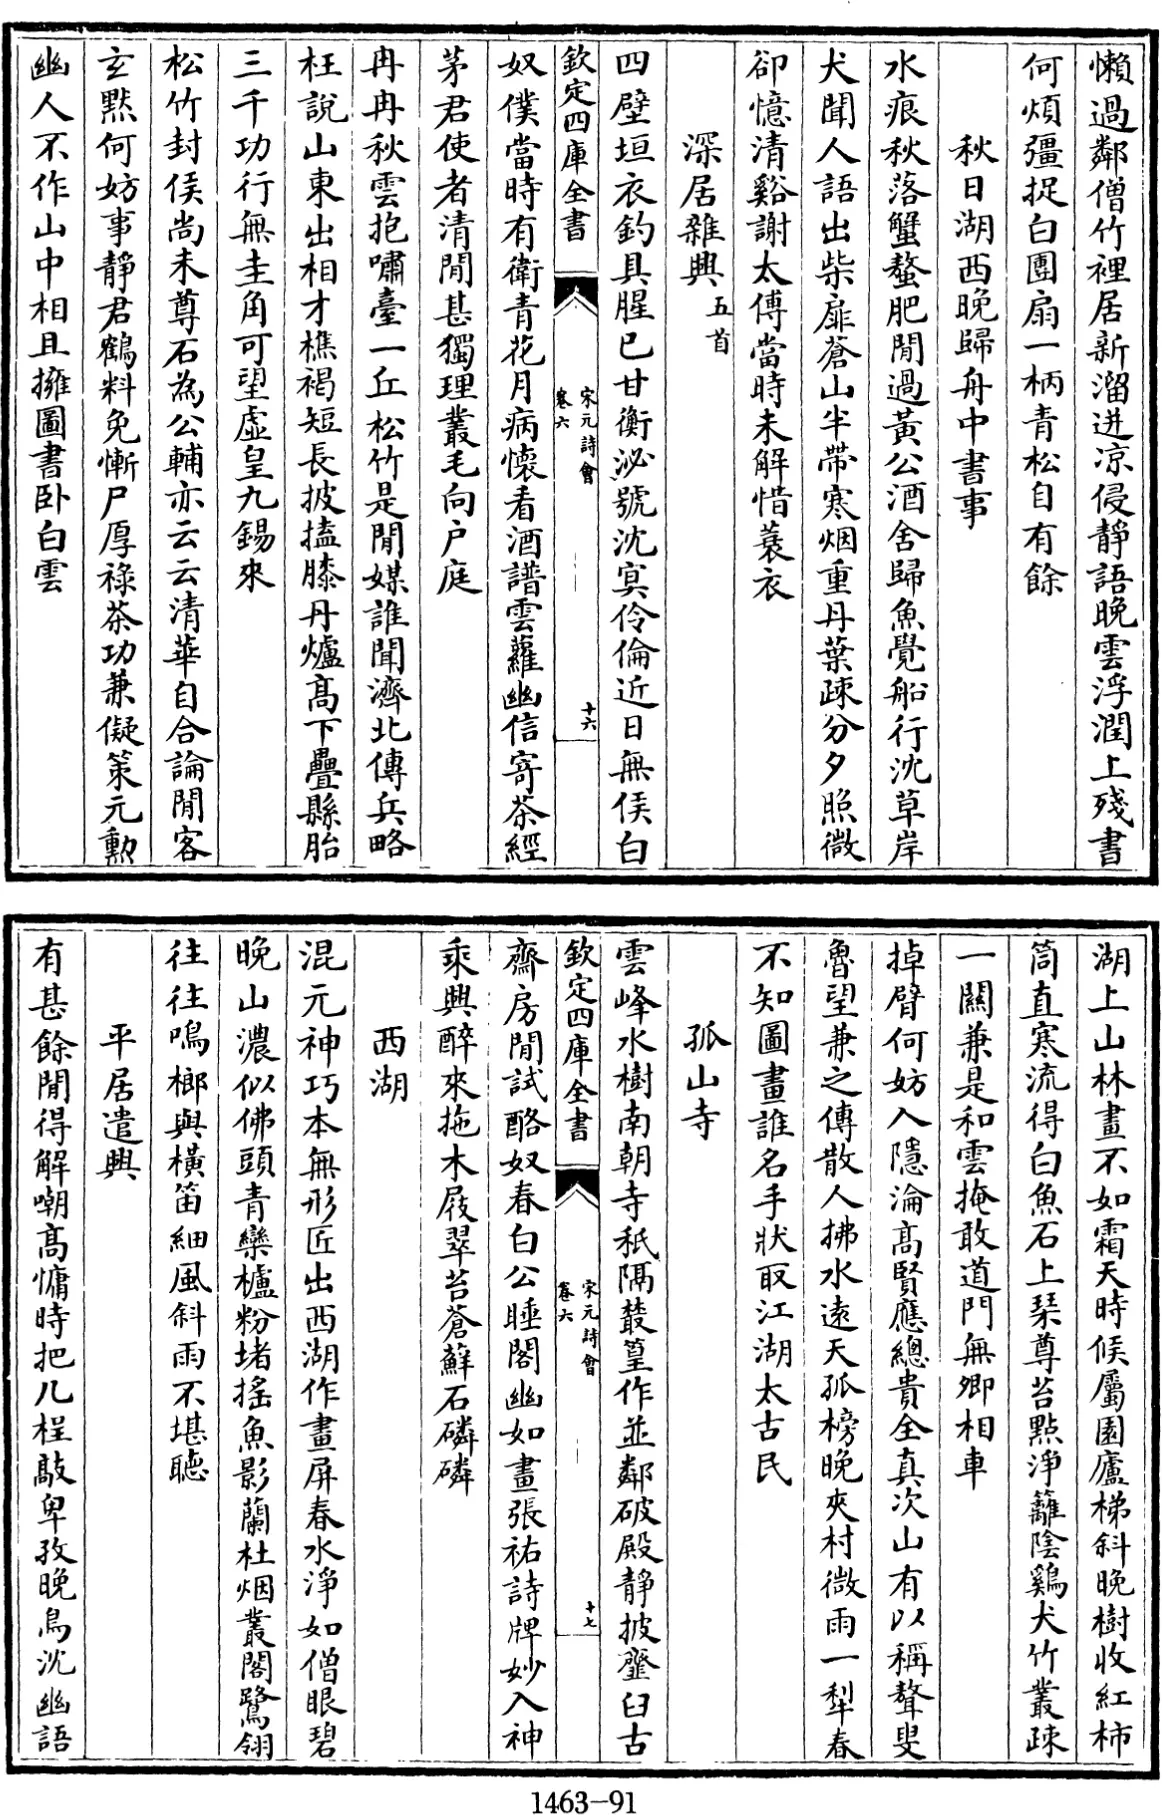 懶過鄰僧竹裡居新溜迸凉侵靜語晚雲浮潤上殘書
何煩彊捉白團扇一柄青松自有餘
秋日湖西晚歸舟中書事
水痕秋落蟹螯肥閒過黃公酒舍歸魚覺船行沈草岸
犬聞人語出柴扉蒼山半帶寒烟重丹葉疎分夕照微
卻憶清谿謝太傅當時未解惜蓑衣
深居雜興五首
四壁垣衣釣具腥已甘衡泌號沈冥伶倫近日無侯白
欽定四庫全書
宋元詩會
卷六
十六
奴僕當時有衛青花月病懷看酒譜雲蘿幽信寄茶經
茅君使者清閒甚獨理叢毛向户庭
冉冉秋雲抱嘯臺一丘松竹是閒媒誰聞濟北傳兵略
枉說山東出相才樵褐短長披搕膝丹爐高下疊縣胎
三千功行無圭角可望虛皇九錫來
松竹封侯尚未尊石為公輔亦云云清華自合論閒客
玄黙何妨事靜君鶴料免慚尸厚祿茶功兼儗策元勲
幽人不作山中相且擁圖書卧白雲
湖上山林畫不如霜天時候屬園廬梯斜晚樹收紅柿
筒直寒流得白魚石上琴尊苔點淨籬陰鷄犬竹叢疎
一關兼是和雲掩敢道門無卿相車
掉臂何妨入隱淪高賢應總貴全真次山有以稱聱叟
魯望兼之傳散人拂水遠天孤榜晚夾村微雨一犁春
不知圖畫誰名手狀取江湖太古民
孤山寺
雲峰水樹南朝寺秖隔叢篁作並鄰破殿靜披虀臼古
欽定四庫全書
宋元詩會
卷六
十七
齋房閒試酪奴春白公睡閣幽如畫張祐詩牌妙入神
乘興醉來拖木屐翠苔蒼蘚石磷磷
西湖
混元神巧本無形匠出西湖作畫屏春水淨如僧眼碧
晚山濃似佛頭青欒櫨粉堵搖魚影蘭杜烟叢閣鷺翎
往往鳴榔與橫笛細風斜雨不堪聽
平居遣興
有甚餘閒得解嘲高慵時把几桯敲卑孜晚鳥沈幽語
1463-91